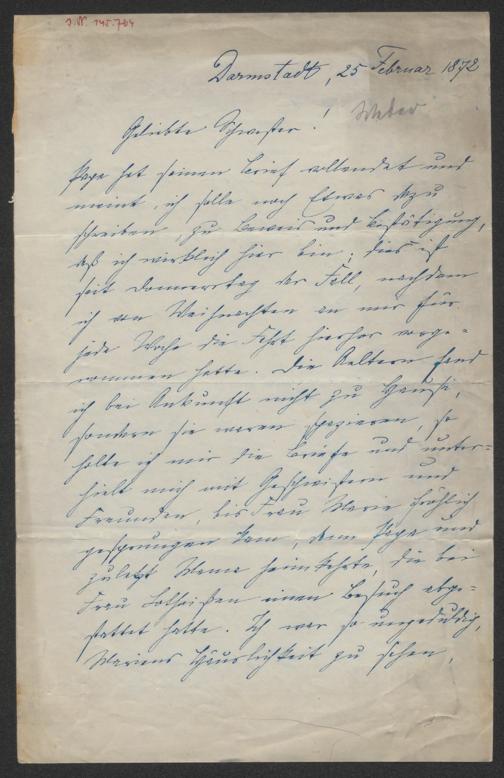 J.N. 145.704
Darmstadt, 25 Februar 1872
Weber
Geliebte Schwester!
Papa hat seinen Brief vollendet und
meint, ich solle noch Etwas dazu
schreiben, zu Beweis und Bestätigung,
daß ich wirklich hier bin; dies ist
seit Donnerstag der Fall, nachdem
ich von Weihnachten an mir für
jede Woche die Fahrt hierher vorge-
nommen hatte. Die Aeltern fand
ich bei Ankunft nicht zu Hause,
sondern sie waren spazieren, so
holte ich mir die Briefe und unter-
hielt mich mit Geschwistern und
Freunden, bis Frau Marie fröhlich
gesprungen kam, dann Papa und
zuletzt Mama heimkehrte, die bei
Frau Lotheißen einen Besuch abge-
stattet hatte. Ich war so ungeduldig,
Mariens Häuslichkeit zu sehen,